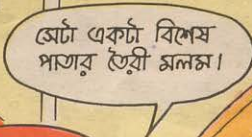 সেটা একটা বিশেষ
পাতার তৈরী মলম।